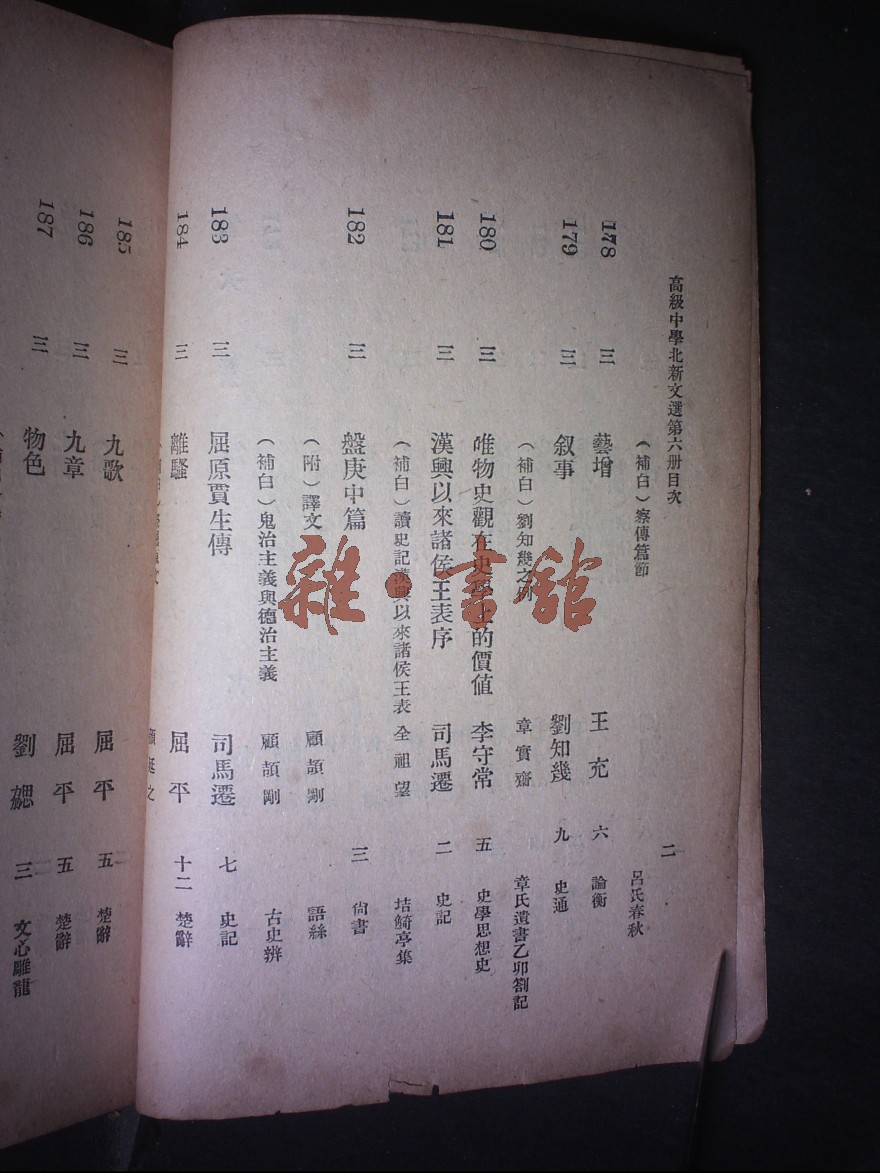 高級中學北新文選第六册目次 二
（補白）察傳篇節 呂氏春秋
178 三 藝增 王充 六 論衡
179 三 叙事 劉知幾 九 史通
（補白）劉知幾之 章實齋 章氏遺書乙卯劄記
180 三 唯物史觀在史學上的價値 李守常 五 史學思想史
181 三 漢興以來諸侯王表序 司馬遷 二 史記
（補白）讀史記漢興以來諸侯王表 全祖望 结鲒亭集
182 三 盤庚中篇 三 尙書
（附）譯文 顧頡剛 語絲
（補白）鬼治主義與德治主義 顧頡剛 古史辨
183 三 屈原賈生傳 司馬遷 七 史記
184 三 離騷 屈平 十二 楚辭
185 三 九歌 屈平 五 楚辭
186 三 九章 屈平 五 楚辭
187 三 物色 劉勰 三 文心雕龍
雜·書舘